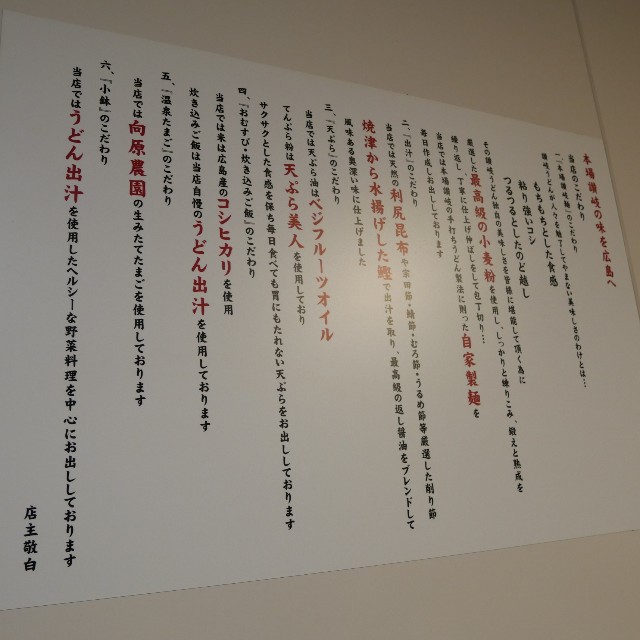 本場讃岐の味を広島へ
当店のこだわり
一、「本場讃岐麺」のこだわり
讃岐うどんが人々を魅了してやまない美味しさのわけとは…
もちもちとした食感
つるつるとしたのど越し
粘り強いコシ
その讃岐うどん独自の美味しさを皆様に堪能して頂く為に
厳選した最高級の小麦粉を使用し、しっかりと練りこみ、鍛えと熟成を
繰り返し、丁寧に仕上げ伸ばしをして包丁切り…
当店では本場讃岐の手打ちうどん製法に則った自家製麺を
毎日作成しお出ししております
二、「出汁」のこだわり
当店では天然の利尻昆布や宗田節・鯖節・むろ節・うるめ節等厳選した削り節
焼津から水揚げした鰹で出汁を取り、最高級の返し醤油をブレンドして
風味ある奥深い味に仕上げました
三、「天ぷら」のこだわり
当店では天ぷら油はベジフルーツオイル
てんぷら粉は天ぷら美人を使用しており
サクサクとした食感を保ち毎日食べても胃にもたれない天ぷらをお出ししております
四、「おむすび・炊き込みご飯」のこだわり
当店では米は広島産のコシヒカリを使用
炊き込みご飯は当店自慢のうどん出汁を使用しております
五、「温泉たまご」のこだわり
当店では向原農園の生みたてたまごを使用しております
六、「小鉢」のこだわり
当店ではうどん出汁を使用したヘルシーな野菜料理を中心にお出ししております
店主敬白